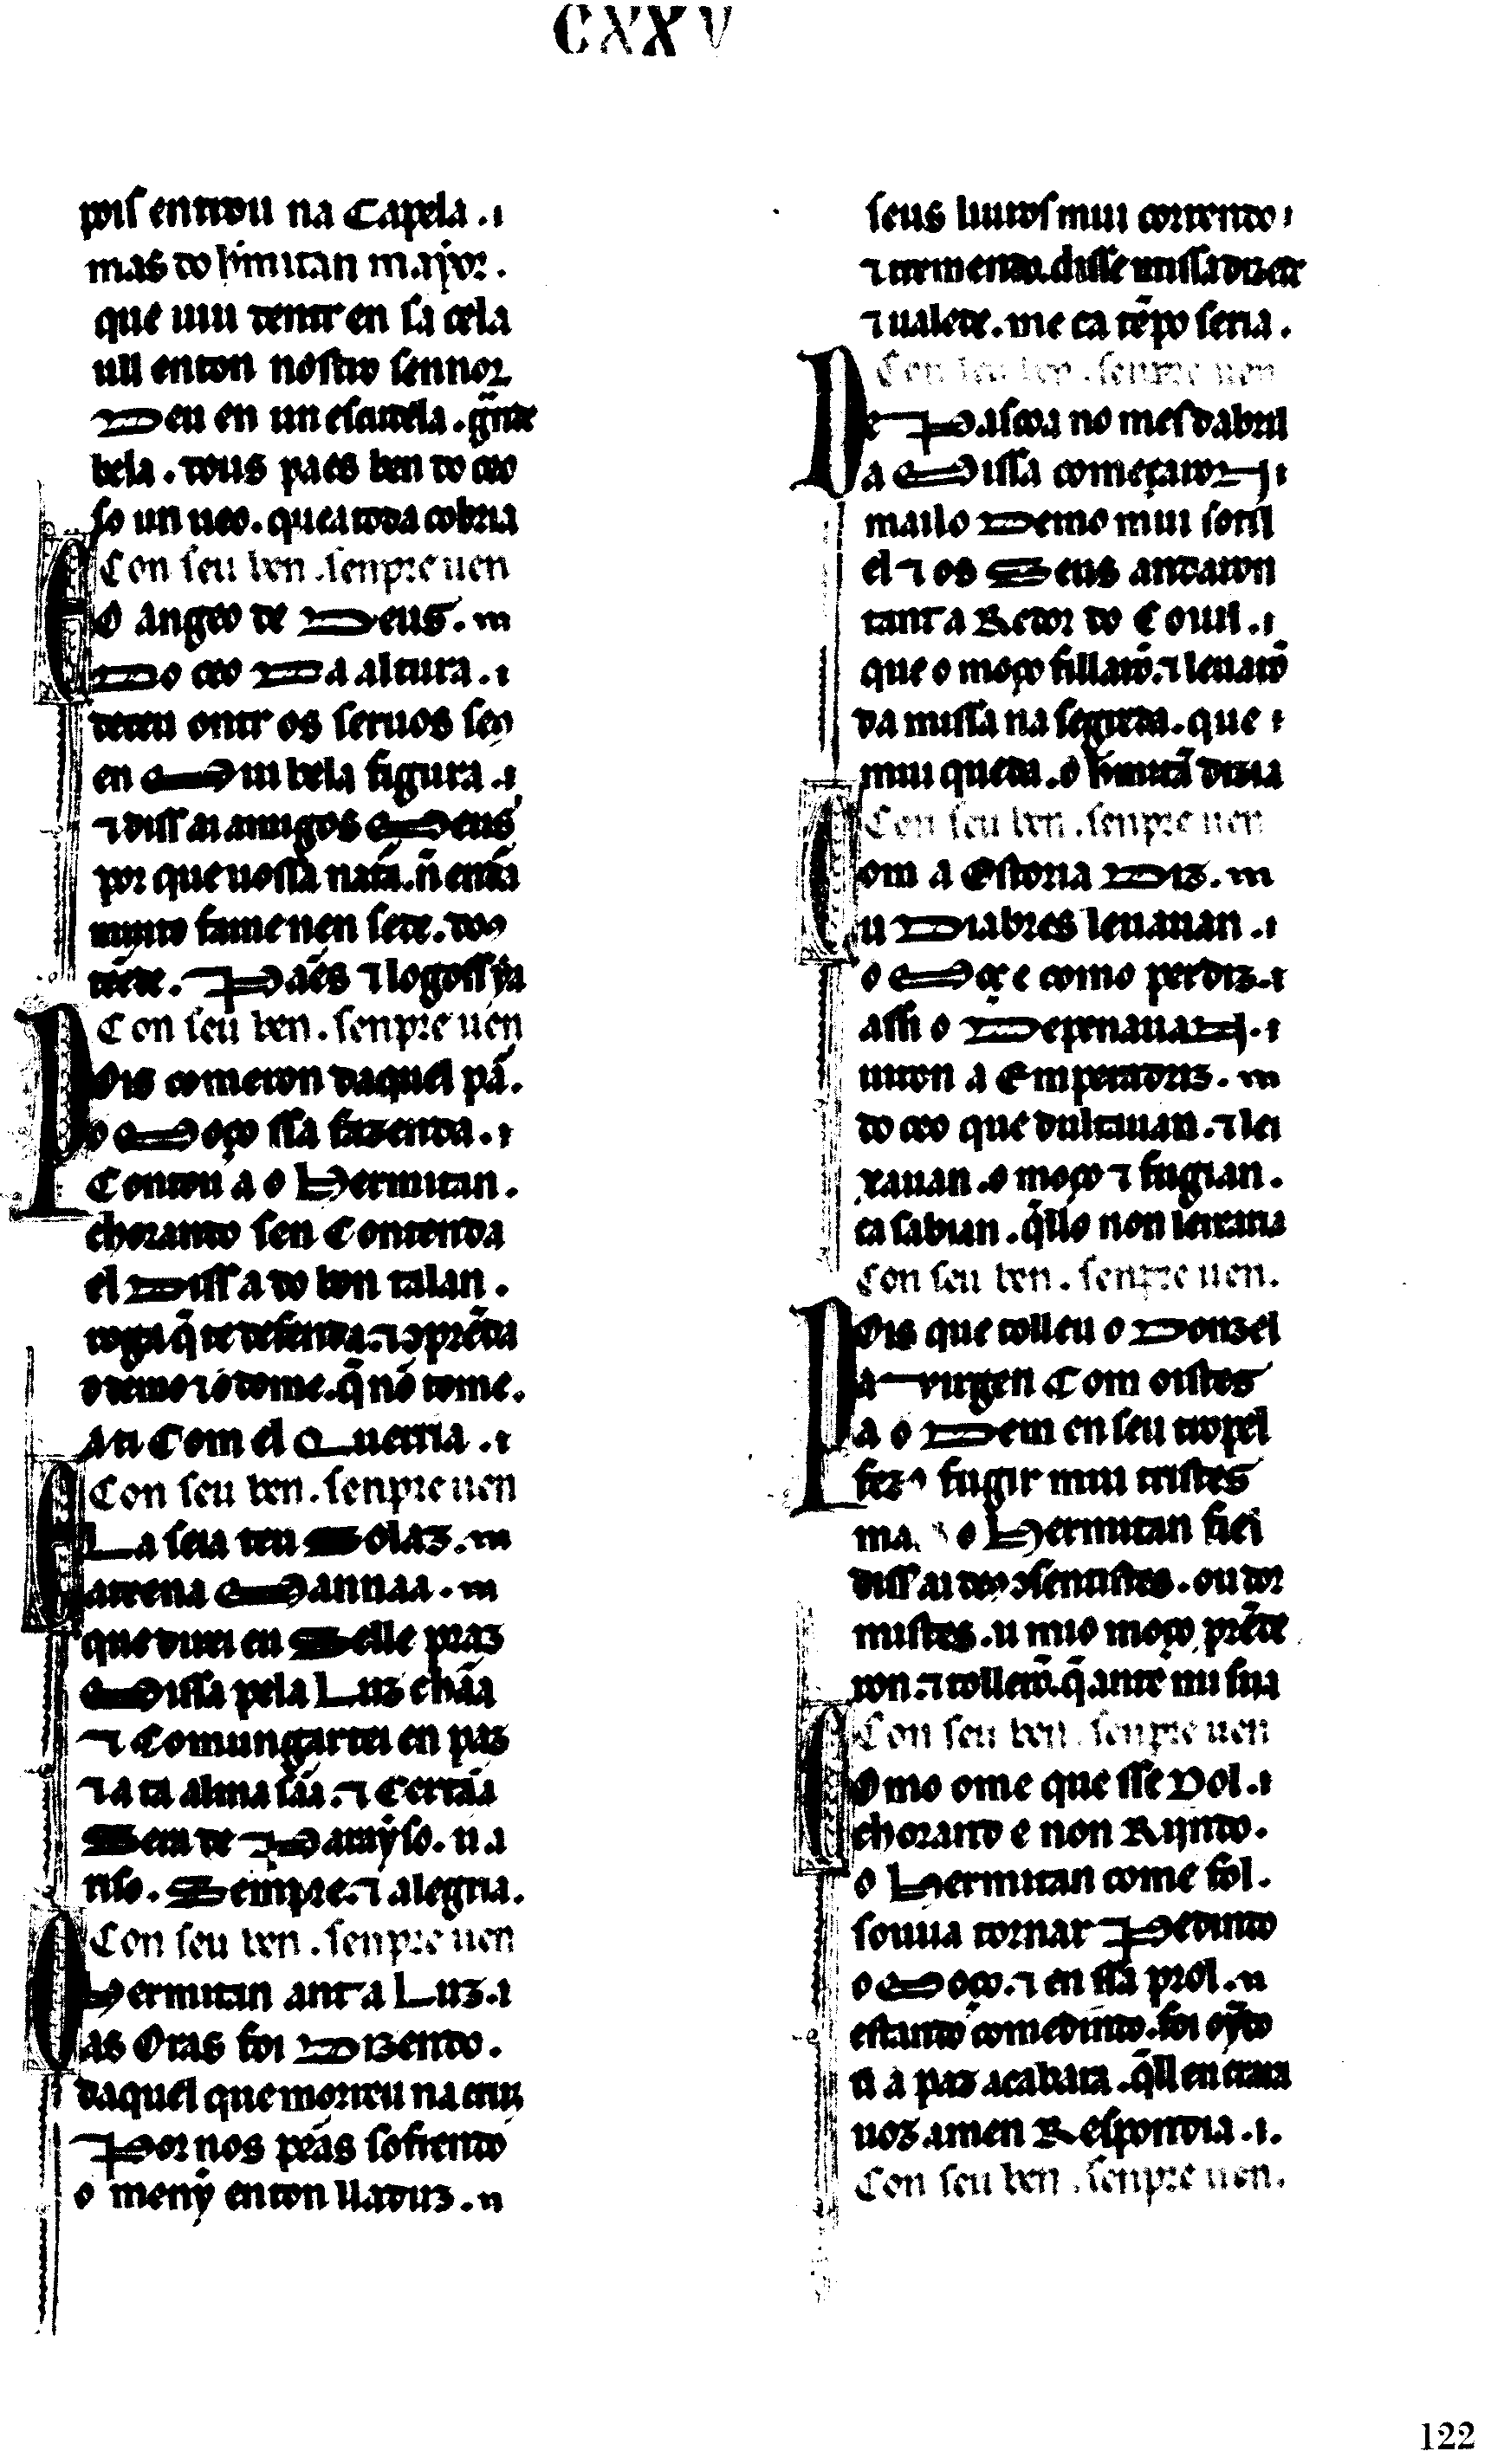 CXXV
poiſ entrou na Capela . ı
mas do h̃mitan mayor .
que uiu dentr en ſa cela
ull enton noſtro ſennor
Deu en un eſcudela . g̃nde
bela . dous pães ben do ceo
ſo un ueo . que a toda cobria
Con ſeu ben . ſenpre uen
O angeo de Deus . m
Do ceo Da altura . ı
deceu ontr os ſeruos ſeꝰ
en Mui bela figura . ı
⁊ diſſ ai amigos Meus
por que uoſſa natã . ñ enteã
muito fame nen ſede . doꝰ
tẽede . Pães ⁊ logoſſ ya
Con ſeu ben . ſenpre uen
Pois comeron daquel pã .
o Moço ſſa fazenda . ı
Contou a o Hermitan .
chorando ſen Contenda
el Diſſ a do bon talan .
roga q̃ te defenda . ⁊ ↄprẽda
o demo ⁊ o dome . q̃ nõ tome .
ari Com el Querria . ı
Con ſeu ben . ſenpre uen
E La ſeia teu Solaz . m
atẽena Mannãa . m
que direi eu Selle praz
Miſſa pela Luz chãa
⁊ Comungartei en paz
⁊ a ta alma ſãa . ⁊ Certãa
Sera de Parayſo . u a
riſo . Senpre . ⁊ alegria .
Con ſeu ben . ſenpre uen
O Hermitan ant a Luz . ı
as Oras foi Dizendo .
daquel que morreu na cruz
Por nos pẽas ſofrendo
o meny̆o enton ll aduz . u
ſeus liuroſ mui correndo ı
⁊ tremendo . diſſe miſſa dizede
⁊ ualede . me ca tẽpo ſeria .
Con ſeu ben . ſenpre uen
De Paſcoa no meſ dabril
a Miſſa começaron ı
mailo Demo mui ſotil
el ⁊ os Seus andaron
tant a Redor do Couil . ı
que o moço fillarõ . ⁊ leuarõ
da miſſa na ſegreda . que ı
mui queda . o h̃mitã dizia
Con ſeu ben . ſenpre uen
Com a Eſtoria Diz . m
u Diabres leuauan . ı
o Moç e como perdiz . ı
aſſi o Depenauan . ı
uiron a Emperadriz . m
do ceo que dultauan . ⁊ lei
xauan . o moço ⁊ fugian .
ca ſabian . q̃llo non leixaria
Con ſeu ben . ſenpre uen .
Pois que tolleu o Donzel
a virgen Com oiſtes
a o Dem en ſeu tropel
fezo fugir mui triſtes
ma. o Hermitan fiel
diſſ ai deꝰ ↄſentiſtes . ou dor
miſtes . u mio moço prẽde
ron . ⁊ tollerõ . q̃ ante mi ſiia
Con ſeu ben . ſenpre uen
Como ome que ſſe Dol . ı
chorand e non Riindo .
o Hermitan come fol .
ſouua tornar Pedindo
o Moço . ⁊ en ſſa prol . u
eſtando comedindo . foi oy̆do
ti a paz acabara . q̃ll en crara
uoz . amen Reſpondia . ı .
Con ſeu ben . ſenpre uen .
122